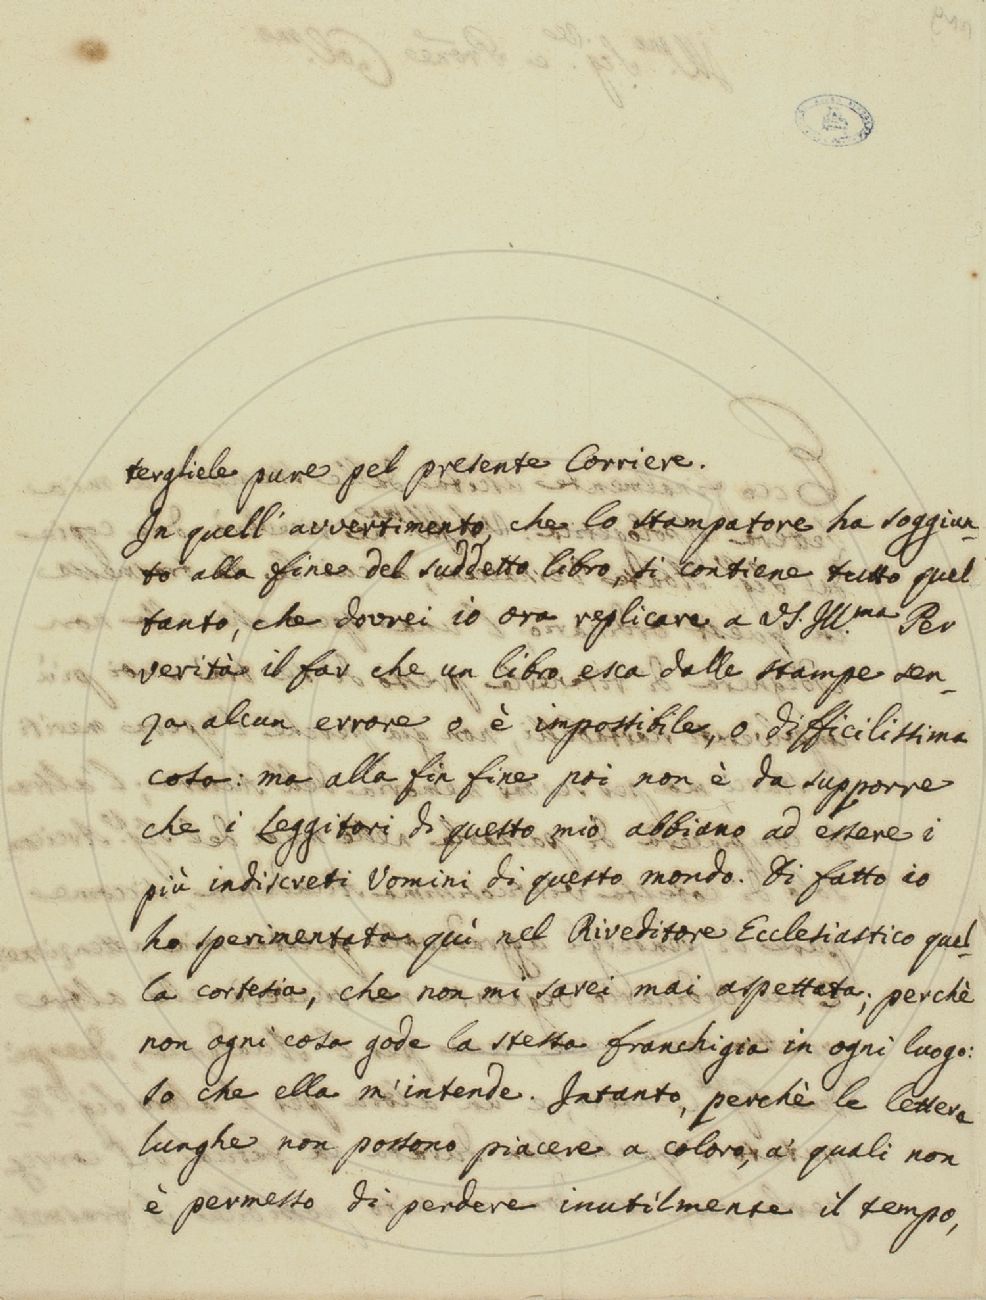 tergliele pure pel presente Corriere.
In quell' avvertimento, che lo stampatore ha soggiun-
to alla fine del suddetto libro, si contiene tutto quel
tanto, che dovrei io ora replicare a VS. Ill.ma Per
verità il far che un libro esca dalle stampe sen-
za alcun errore o è impossibile, o difficilissima
cosa: ma alla fin fine poi non è da supporre
che i Leggitori di questo mio abbiano ad essere i
più indiscreti Uomini di questo mondo. Di fatto io
ho sperimentata quì nel Riveditore Ecclesiastico quel-
la cortesia, che non mi sarei mai aspettata; perchè
non ogni cosa gode la stessa franchigia in ogni luogo:
So che ella m'intende. Intanto, perchè le lettere
lunghe non possono piacere a coloro, a' quali non
è permesso di perdere inutilmente il tempo,